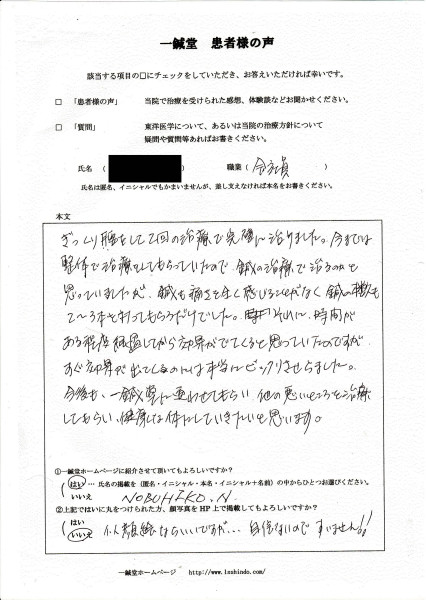 一鍼堂 患者様の声
該当する項目の□にチェックをしていただき、お答えいただければ幸いです。
□ 「患者様の声」 当院で治療を受けられた感想、体験談などお聞かせください。
□ 「質問」 東洋医学について、あるいは当院の治療方針について
疑問や質問等あればお書きください。
氏名 ( ) 職業 ( 会社員 )
氏名は匿名、イニシャルでもかまいませんが、差し支えなければ本名をお書きください。
本文
ぎっくり腰をして2回の治療で完璧に治りました。今までは
整体で治療をしてもらっていたので、鍼の治療で治るのかと
思っていましたが、鍼も痛さを全く感じることがなく 鍼の本数も
2〜3本を打ってもらうだけでした。それに、時間が
ある程度経過してから効果がでてくると思っていたのですが
すぐ効果が出てくるのには本当にビックリさせられました。
今後も、一鍼堂に通わせてもらい、他の悪いところを治療
してもらい、健康な体にしていきたいと思います。
①一鍼堂ホームページに紹介させて頂いてもよろしいですか?
はい … 氏名の掲載を(匿名・イニシャル・本名・イニシャル+名前)の中からひとつお選びください。
いいえ NOBUHIKO.N
②上記ではいに丸をつけられた方、顔写真を HP 上で掲載してもよろしいですか?
はい
いいえ 似顔絵ならいいですが… 自信ないので すいません!!
一鍼堂ホームページ http://www.1sshindo.com/